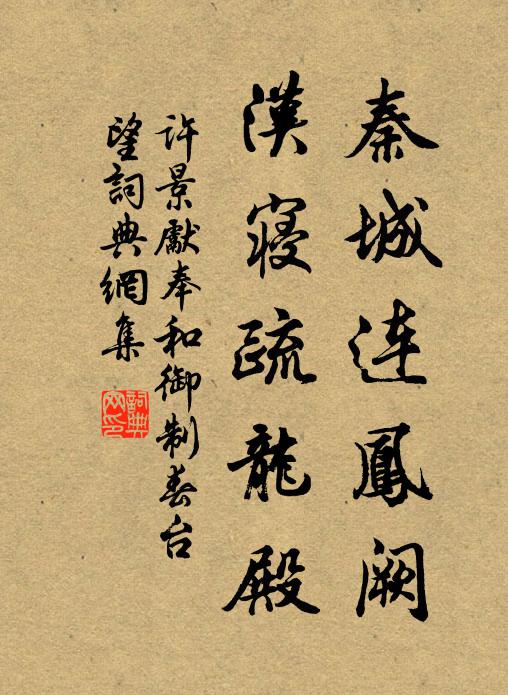 秦城連鳳闕
漢寢疏龍殿
許景獻奉和御制春台
望詞典網集
詞典网印